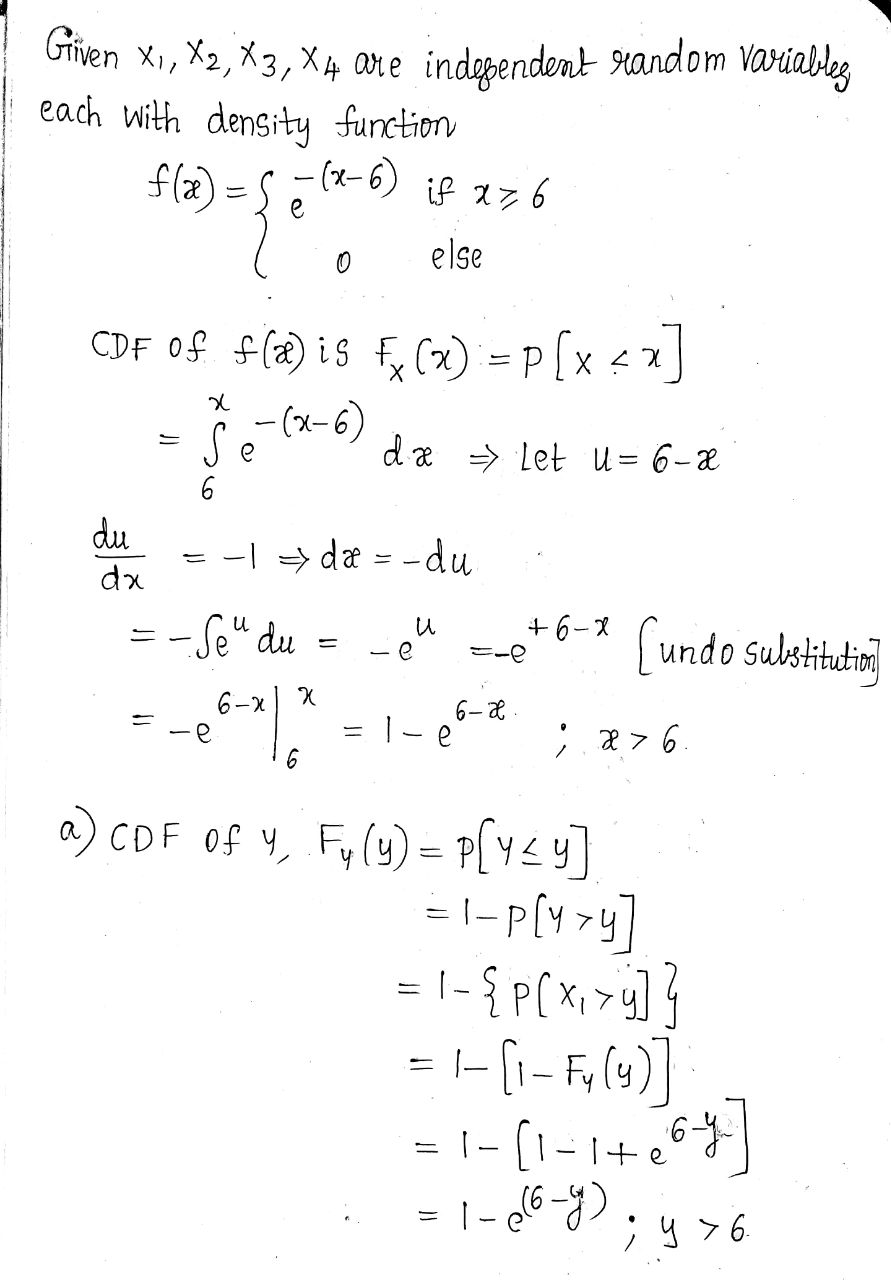 Given X1, X2, X3, X4 are independent random variables
each with density function
f(x) = { e^-(x-6) if x ≥ 6
0 else
CDF of f(x) is F_X(x) = P[X < x]
= ∫_6^x e^-(x-6) dx ⇒ Let u = 6-x
du/dx = -1 ⇒ dx = -du
= -∫e^u du = -e^u = -e^+6-x [undo substitution]
= -e^6-x |_6^x = 1 - e^6-x ; x > 6.
a) CDF of Y, F_y(y) = P[Y ≤ y]
= 1 - P[Y > y]
= 1 - { P[X1 > y] }
= 1 - [1 - F_y(y)]
= 1 - [1 - 1 + e^6-y]
= 1 - e^(6-y) ; y > 6.